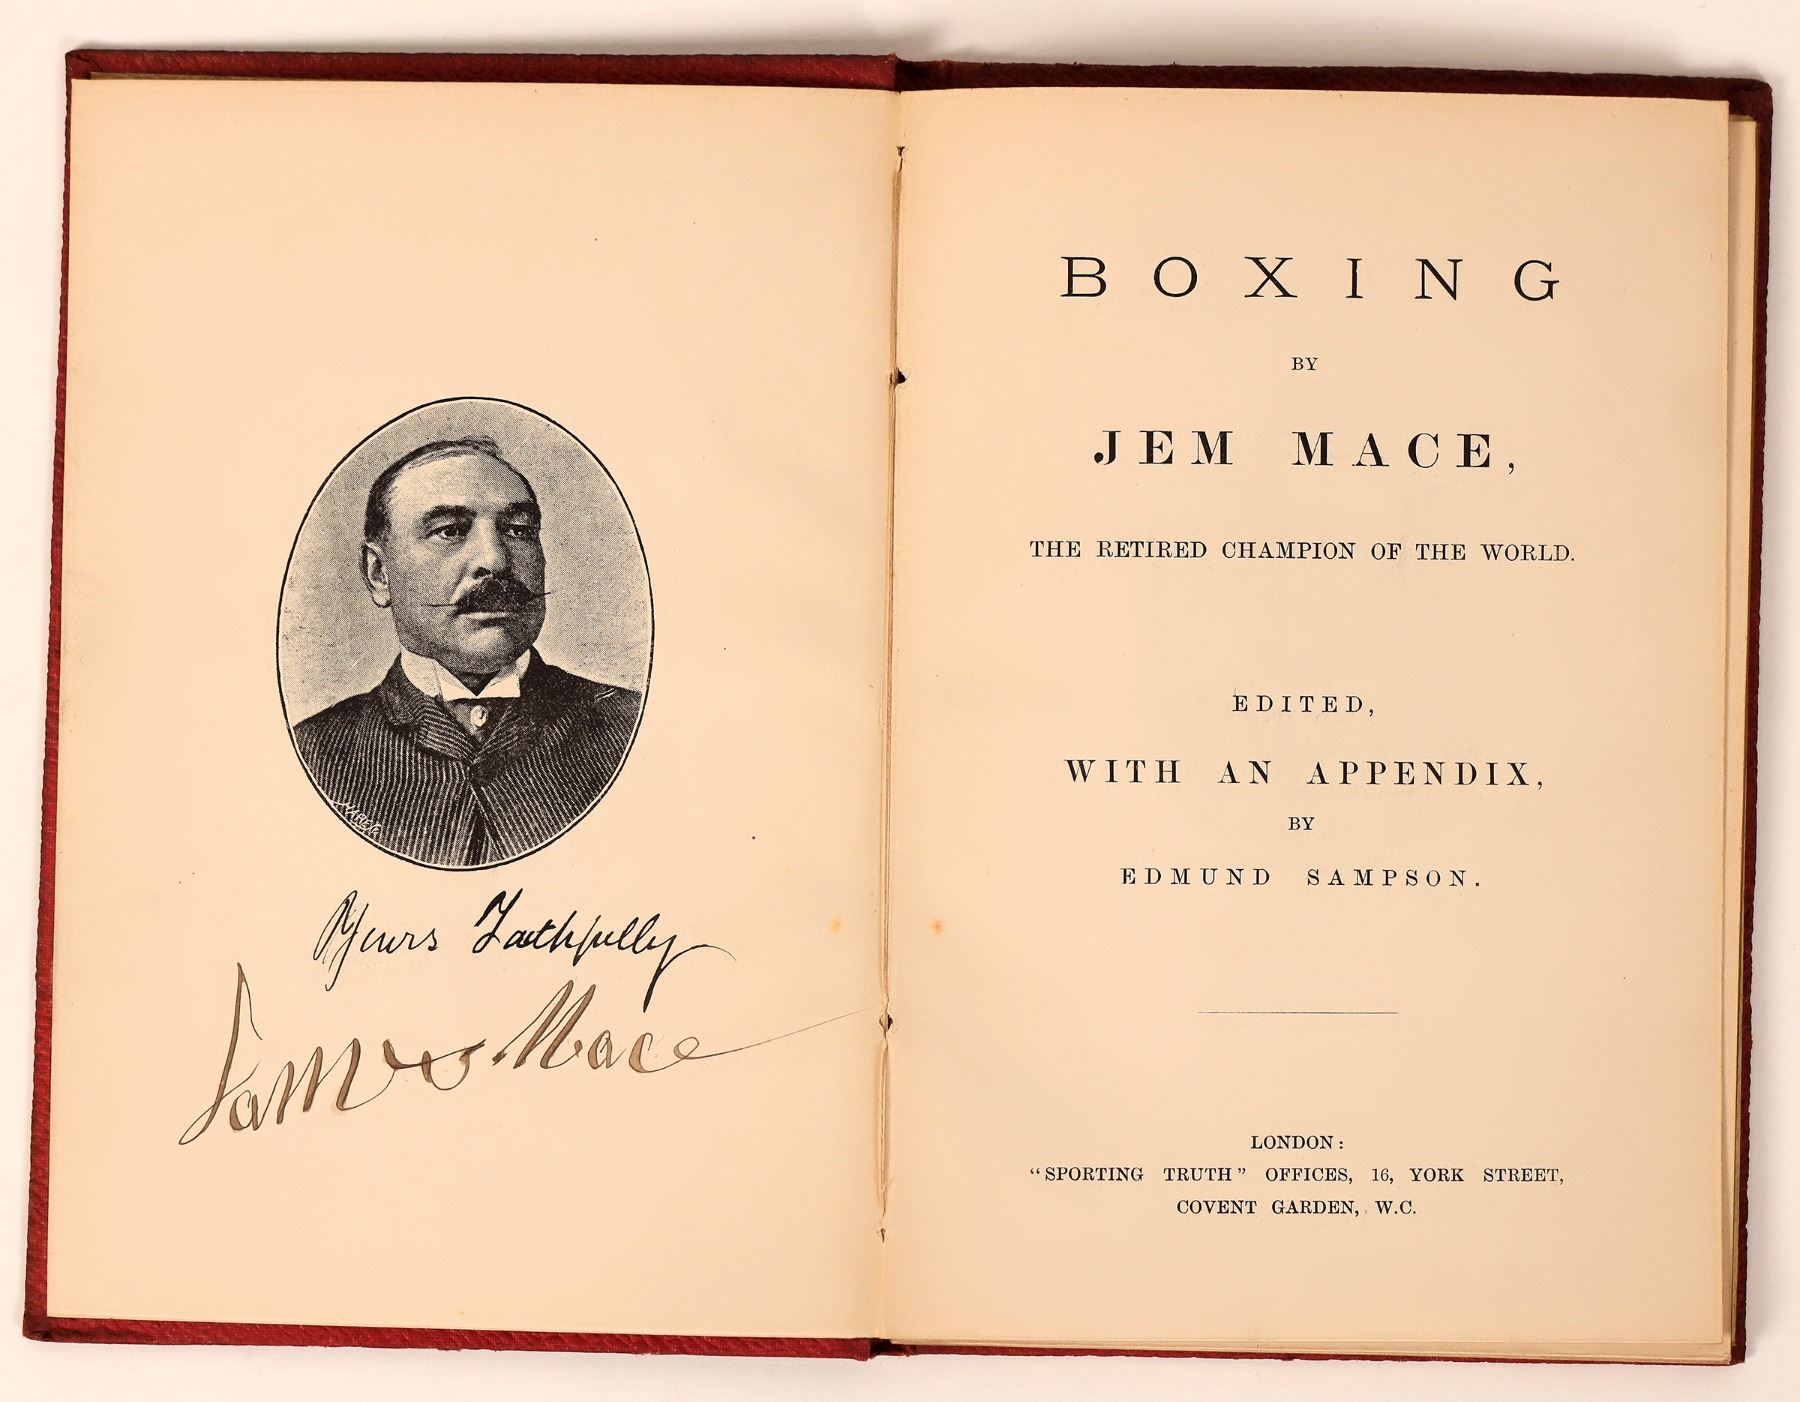 Yours Faithfully
James Mace
BOXING
BY
JEM MACE,
THE RETIRED CHAMPION OF THE WORLD.
EDITED,
WITH AN APPENDIX,
BY
EDMUND SAMPSON.
LONDON:
"SPORTING TRUTH" OFFICES, 16, YORK STREET,
COVENT GARDEN, W.C.